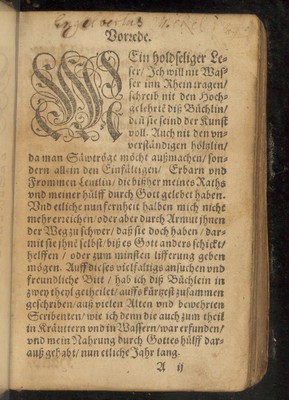 Engelbertus
Vorrede.
MEin holdseliger Le-
ser/ Ich will nit Was-
ser inn Rhein tragen/
schreib nit den Hoch-
gelehrtē diß Büchlin/
dēn sie seind der Kunst
voll. Auch nit den vn-
verständigen hölzlin/
da man Säwtröge möcht außmachen/ son-
dern allein den Einfältigen/ Erbarn vnd
Frommen Leutlin/ die bißher meines Raths
vnd meiner hülff durch Gott gelebet haben.
Vnd etliche nun fernheit halben mich nicht
mehr erreichen/ oder aber durch Armut jhnen
der Weg zu schwer/ daß sie doch haben/ dar-
mit sie jhnē selbs/ biß es Gott anders schickt/
helffen/ oder zum minsten lifferung geben
mögen. Auff dieses vielfaltigs ansuchen vnd
freundliche Bitt/ hab ich diß Büchlein in
zwey theyl getheilet/ auffs kürtzest zusammen
geschriben/ auß vielen Alten vnd bewehrten
Scribenten/ wie ich denn die auch zum theil
in Kräuttern vnd in Wassern/ war erfunden/
vnd mein Nahrung durch Gottes hülff dar-
auß gehabt/ nun etliche Jahr lang.
A ij